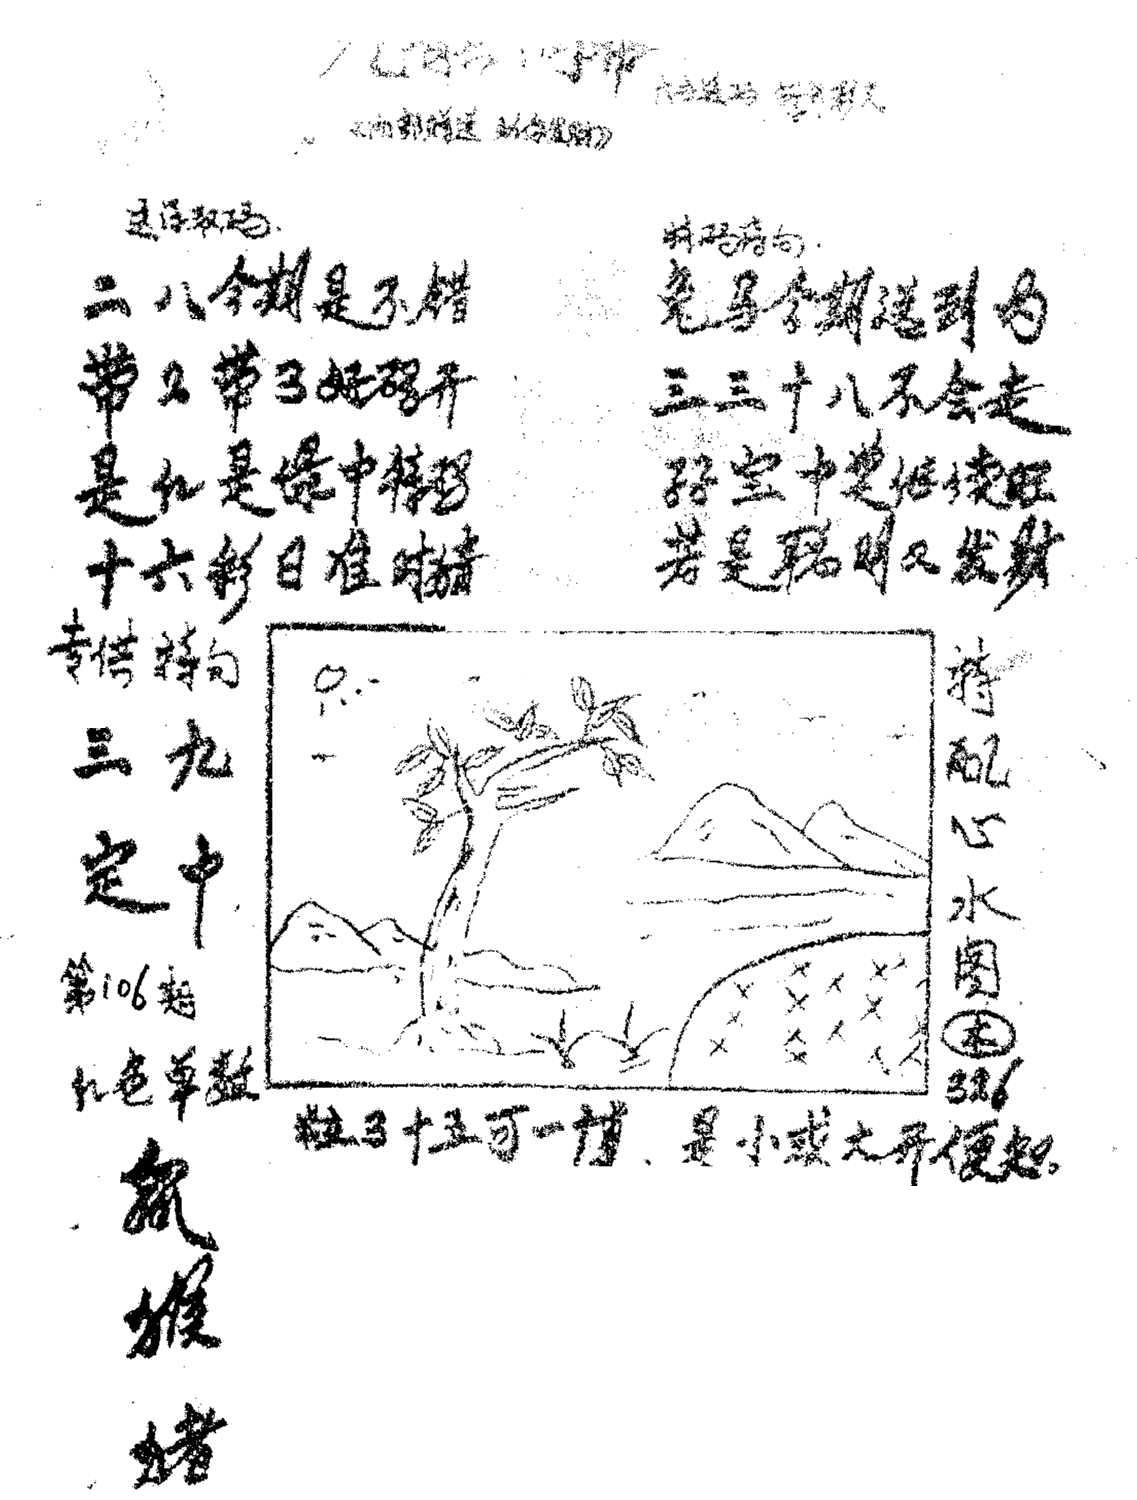 《内部赠送 祝君发财》
送您数码.
特码诗句.
二八今期是不错
带2带3好码开
是红是绿中特码
十六彩日准时猜
兔马今期送到
三三十八不会走
空中楚继续旺
若是聪明又发财
专供特句
三九
定中
第106期
红色单数
鼠
猴
猪
特
配
心
水
图
本
326
十五可一博、是小或大开便知。